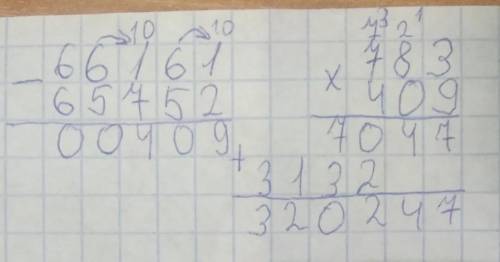 10 10
- 66161
65752
00409
7³ 2¹
783
x 409
7047
+ 3132
320247